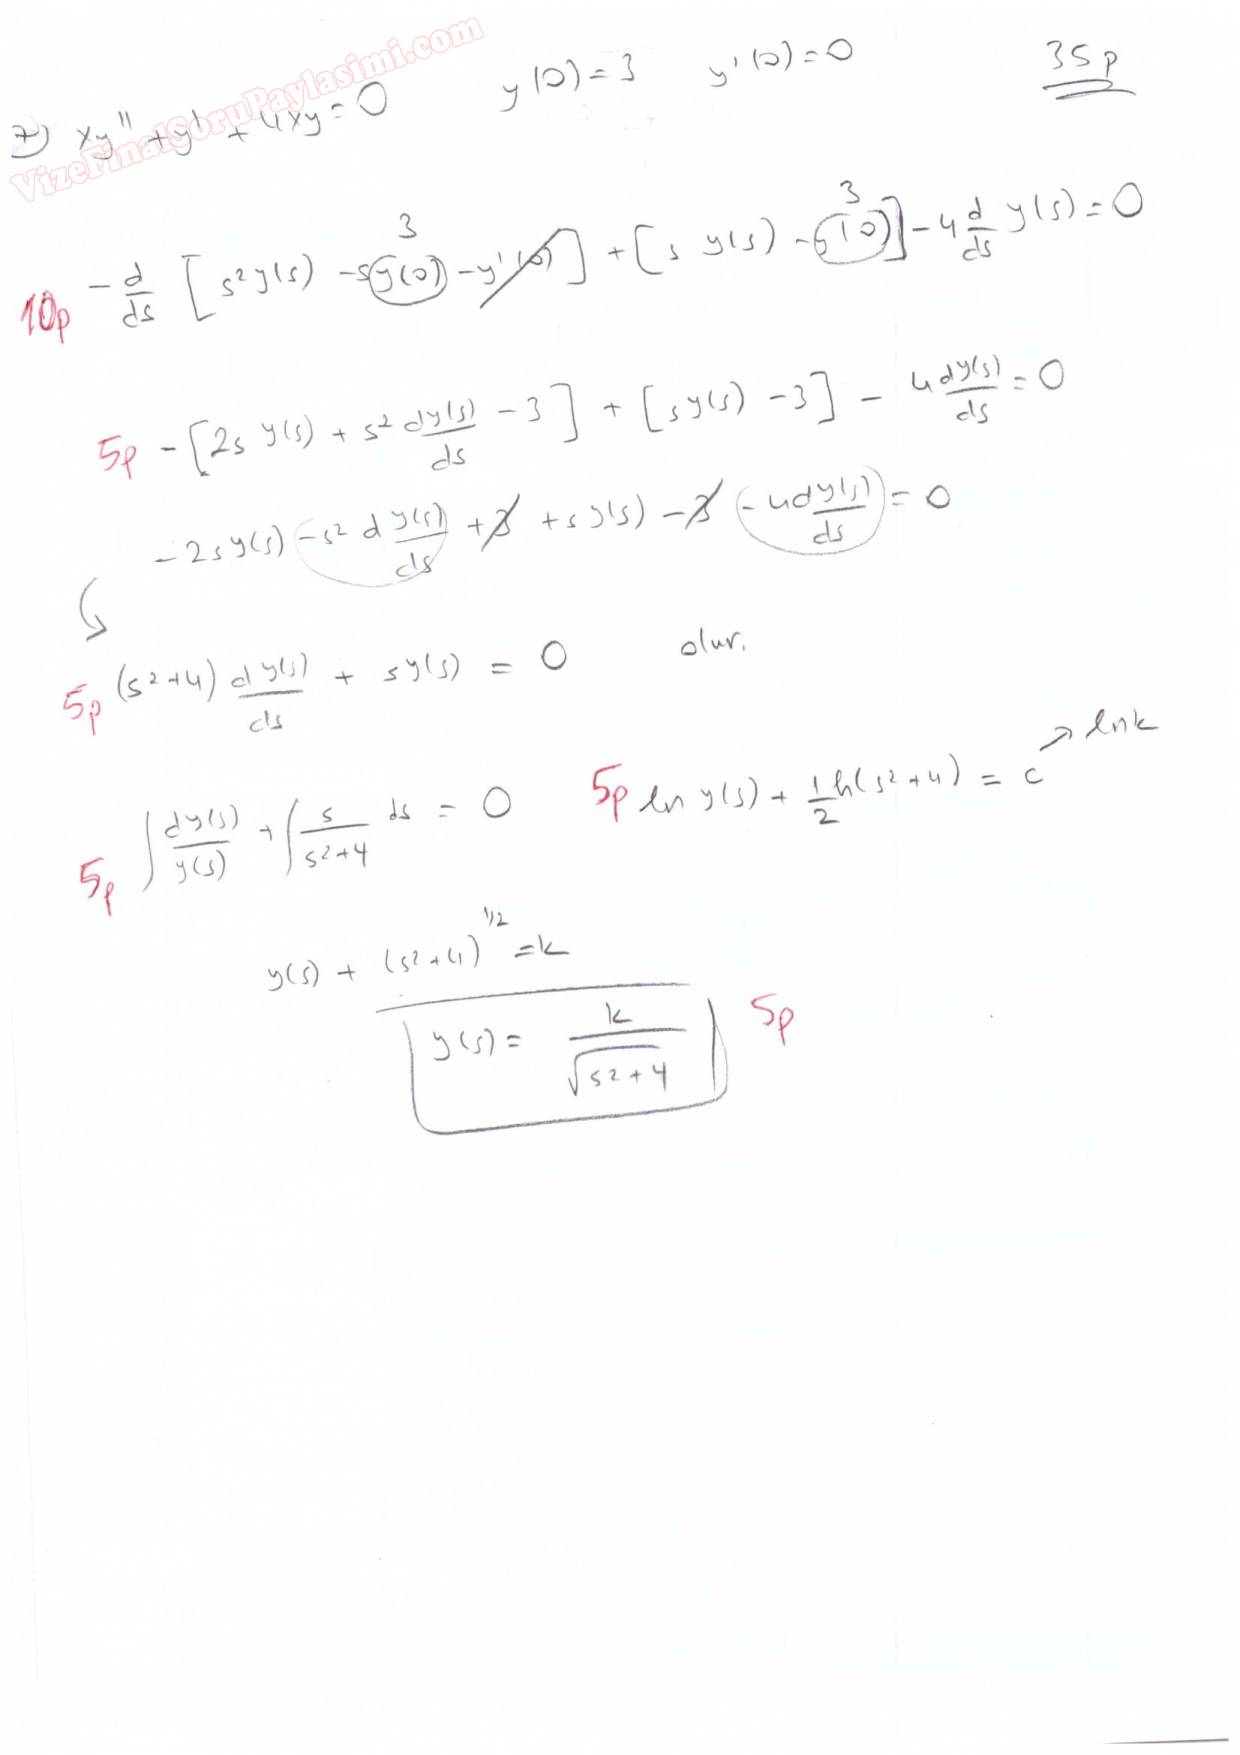 VizeFinalSoruPaylasimi.com
7) xy'' + y' + 4xy = 0 y(0) = 3 y'(0) = 0 35p
3 3
10p - d/ds [s² y(s) - sy(0) - y'(0)] + [s y(s) - y(0)] - 4 d/ds y(s) = 0
5p - [2s y(s) + s² dy(s)/ds - 3] + [sy(s) - 3] - 4dy(s)/ds = 0
- 2sy(s) - s² d y(s)/ds + 3 + sy(s) - 3 - 4dy(s)/ds = 0
5p (s²+4) d y(s)/ds + sy(s) = 0 olur.
5p ∫ dy(s)/y(s) + ∫ s/s²+4 ds = 0 5p ln y(s) + 1/2 ln(s²+4) = c → lnk
y(s) + (s²+4)^1/2 = k
y(s) = k/√s²+4 5p